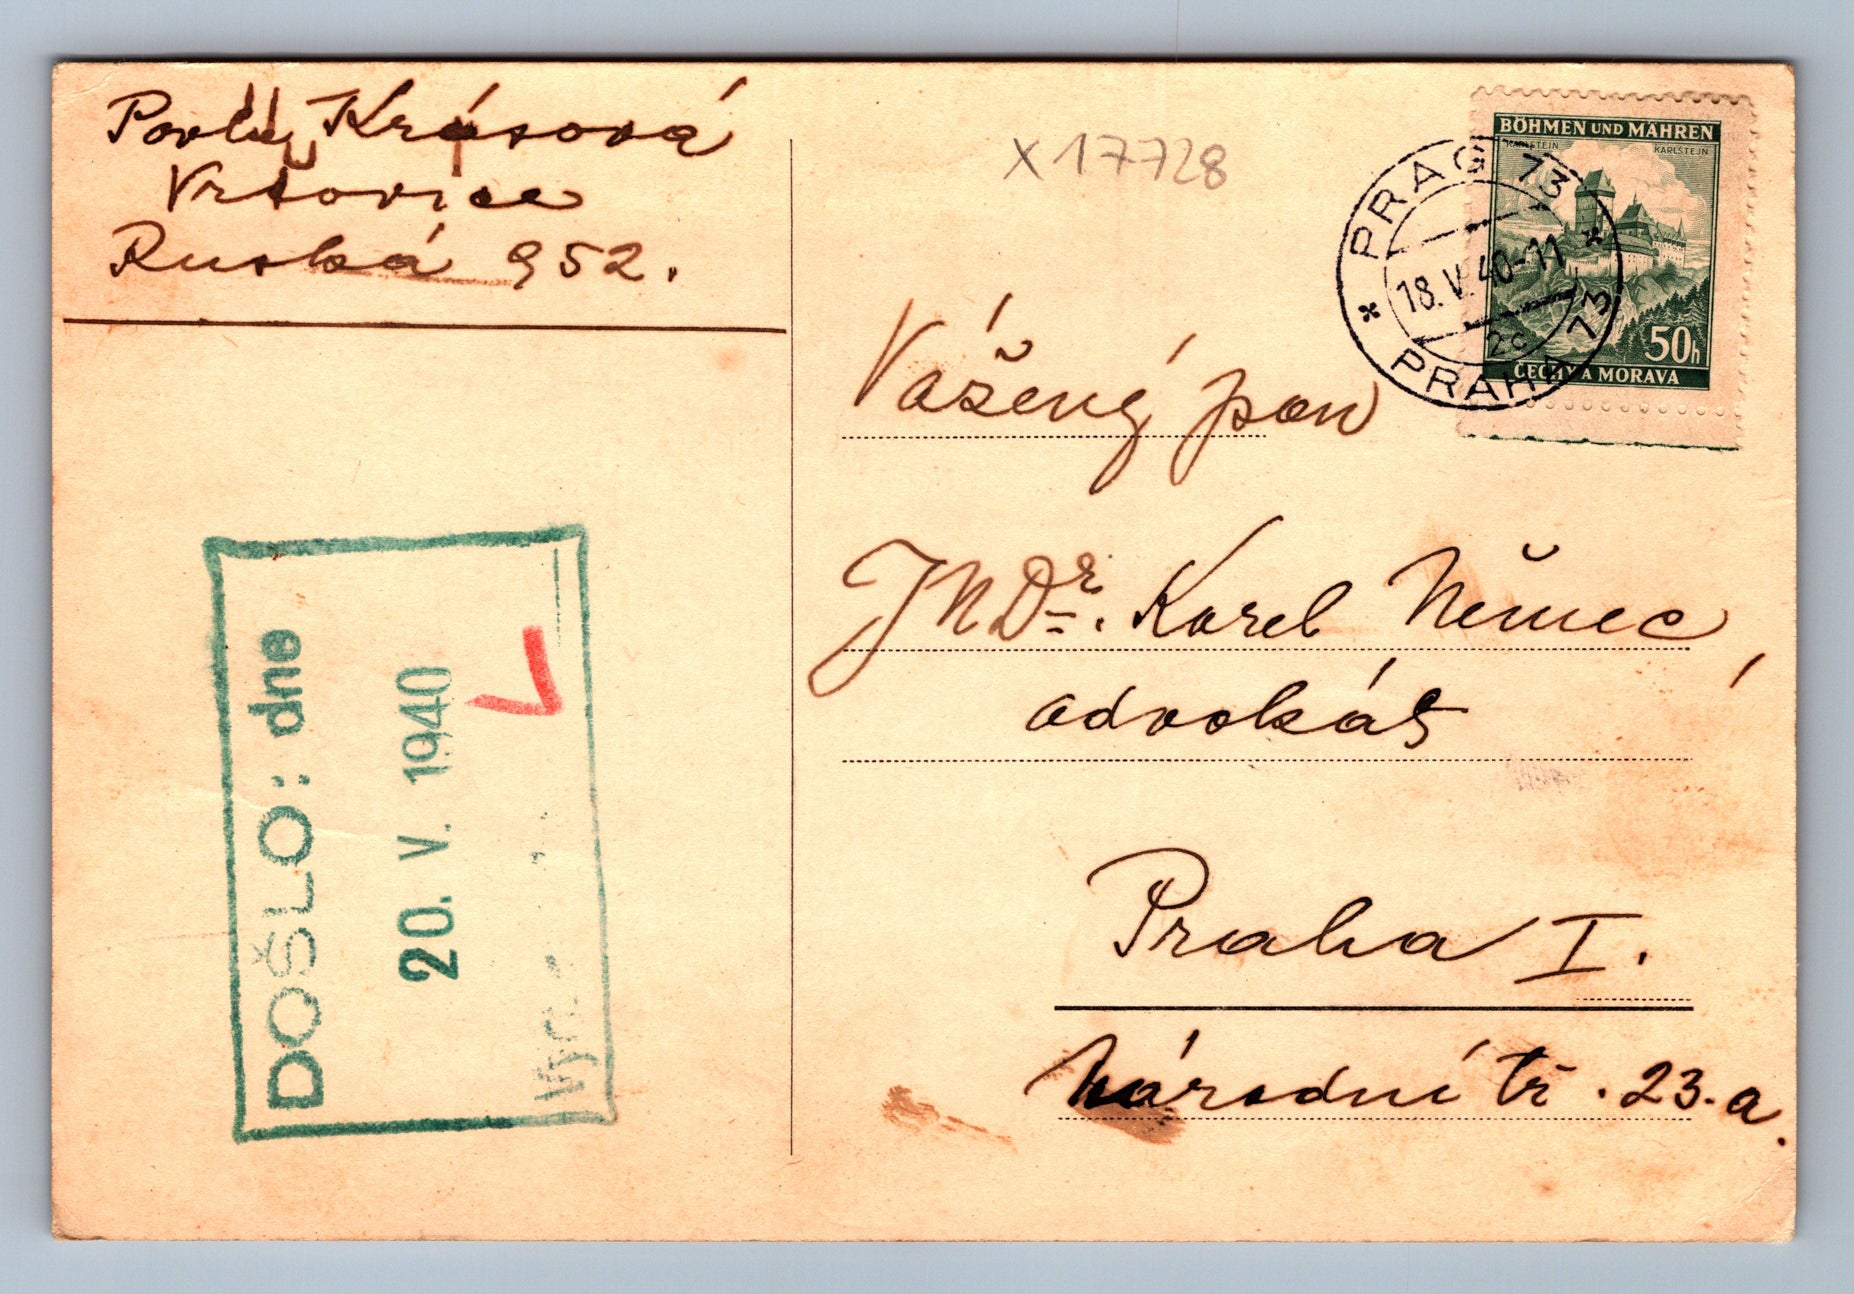 Pavla Krásová
Vršovice
Ruská 952.
X 17728
BÖHMEN UND MÄHREN
KARLSTEIN KARLŠTEJN
50h
ČECHY A MORAVA
PRAG 73
18.V.40-11
2c
PRAHA 73
Vážený pan
JUDr. Karel Němec
advokát
Praha I.
Národní tř. 23.a.
DOŠLO: dne
20. V. 1940